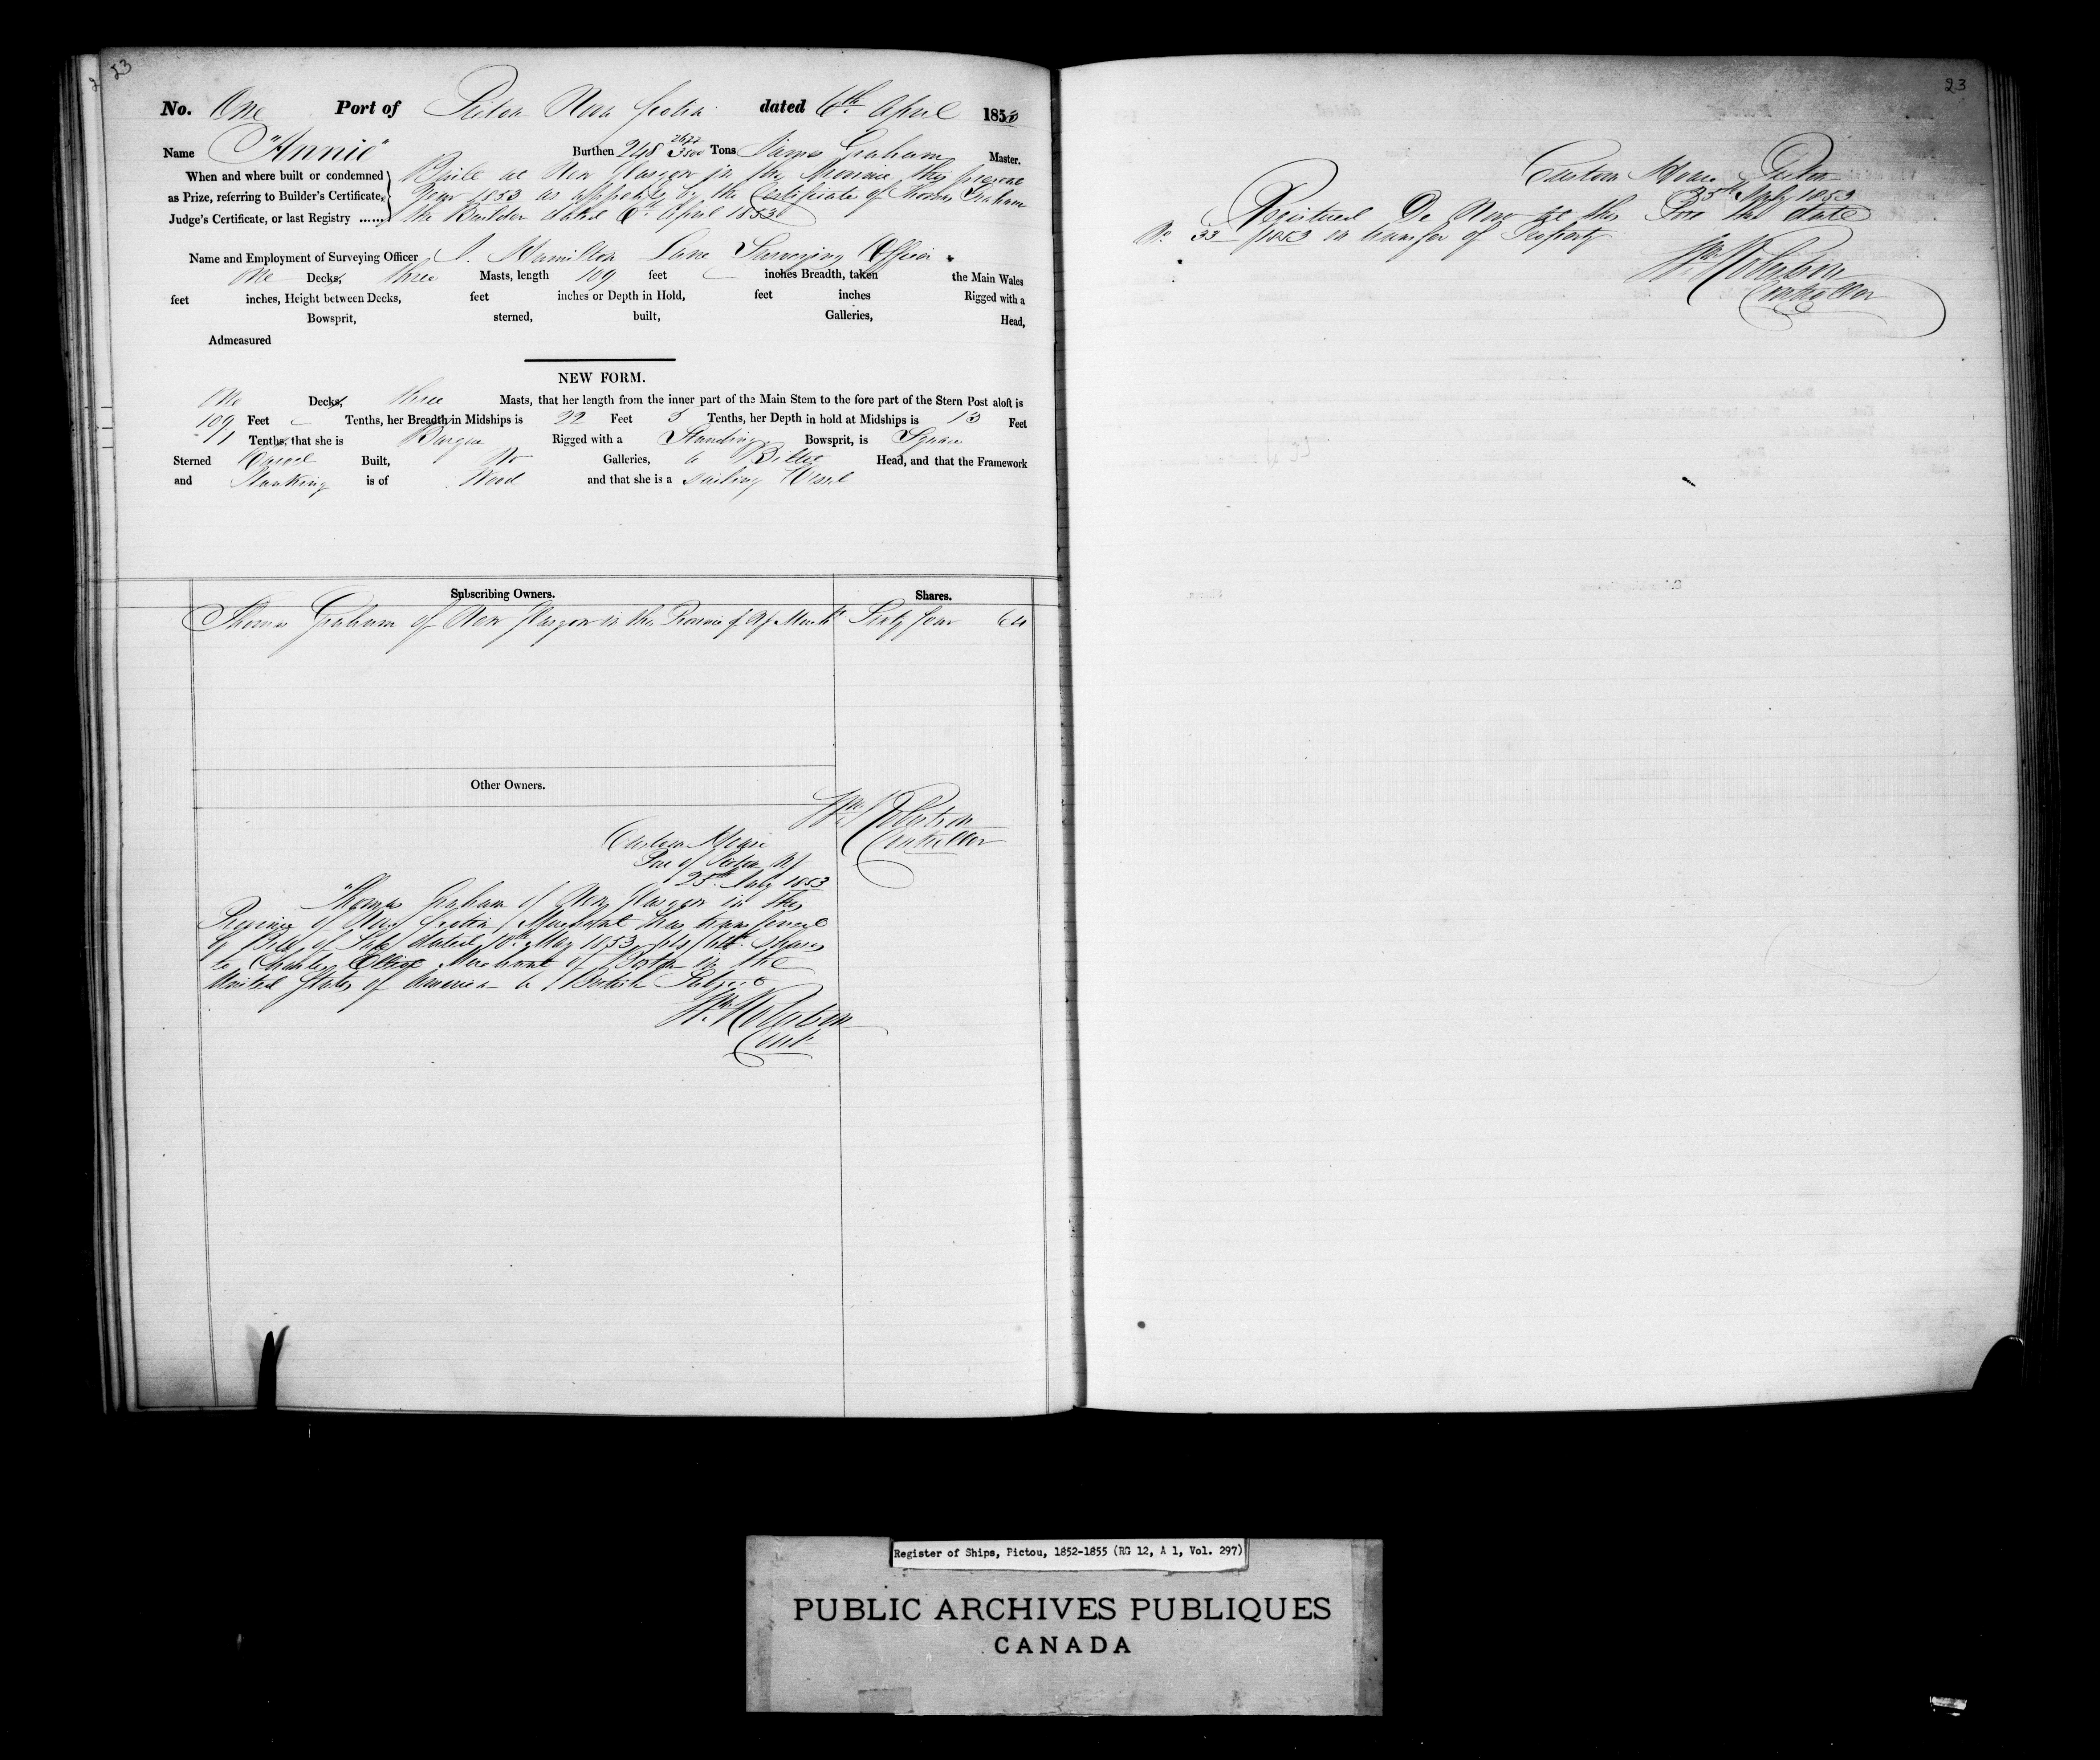 23
No. One Port of Pictou Nova Scotia dated 6th April 1853
Name "Annie" Burthen 248 Tons James Graham Master.
When and where built or condemned Built at New Glasgow in the Province this present
as Prize, referring to Builder's Certificate, Year 1853 as appears by the Certificate of Thomas Graham
Judge's Certificate, or last Registry ...... the Builder dated 6th April 1853
Name and Employment of Surveying Officer J. Hamilton Lane Surveying Officer
One Decks, three Masts, length 109 feet inches Breadth, taken the Main Wales
feet inches, Height between Decks, feet inches or Depth in Hold, feet inches Rigged with a
Bowsprit, sterned, built, Galleries, Head,
Admeasured
NEW FORM.
One Decks, three Masts, that her length from the inner part of the Main Stem to the fore part of the Stern Post aloft is
109 Feet Tenths, her Breadth in Midships is 22 Feet 5 Tenths, her Depth in hold at Midships is 13 Feet
Tenths, that she is Barque Rigged with a Standing Bowsprit, is Square
Sterned Carvel Built, No Galleries, a Billet Head, and that the Framework
and Planking is of Wood and that she is a sailing Vessel
Subscribing Owners. Shares.
Thomas Graham of New Glasgow in the Province of NS Mercht Sixty four 64
Other Owners.
Wm Robertson
Controller
Custom House
Port of Pictou NS
25th July 1853
Thomas Graham of New Glasgow in the
Province of Nova Scotia Merchant has transferred
by Bill of Sale dated 10th May 1853 64/64th Shares
to Charles Merchant of Boston in the
United States of America a British Subject
Wm Robertson
Contr
23
Custom House Pictou
25th July 1853
Registered De Novo at this Port this date
No 33 /1853 on transfer of Property
Wm Robertson
Controller
Register of Ships, Pictou, 1852-1855 (RG 12, A 1, Vol. 297)
PUBLIC ARCHIVES PUBLIQUES
CANADA